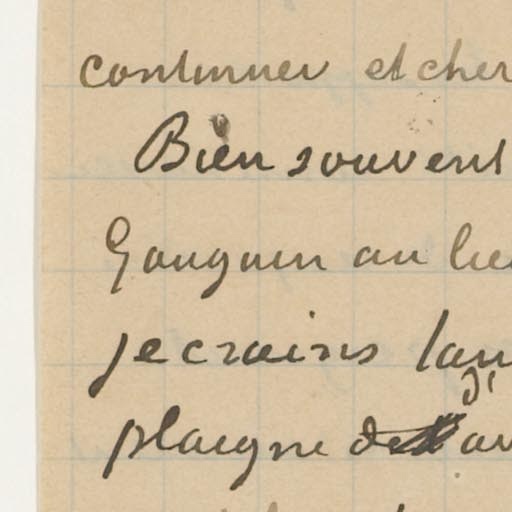 continuer et cher
Bien souvent
Gauguin au lie
je crains tan
d'
plaigne de av